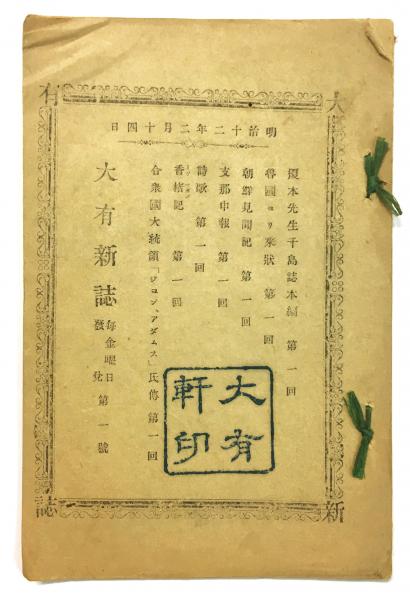 大有新誌
明治十二年二月十四日
榎本先生千島誌本編 第一回
魯國ヨリ來狀 第一回
朝鮮見聞記 第一回
支那申報 第一回
詩歌 第一回
香椿記 第一回
合衆國大統領「ジヨン、アダムス」氏傳 第一回
大有新誌 每金曜日發兌 第一號
大有軒印